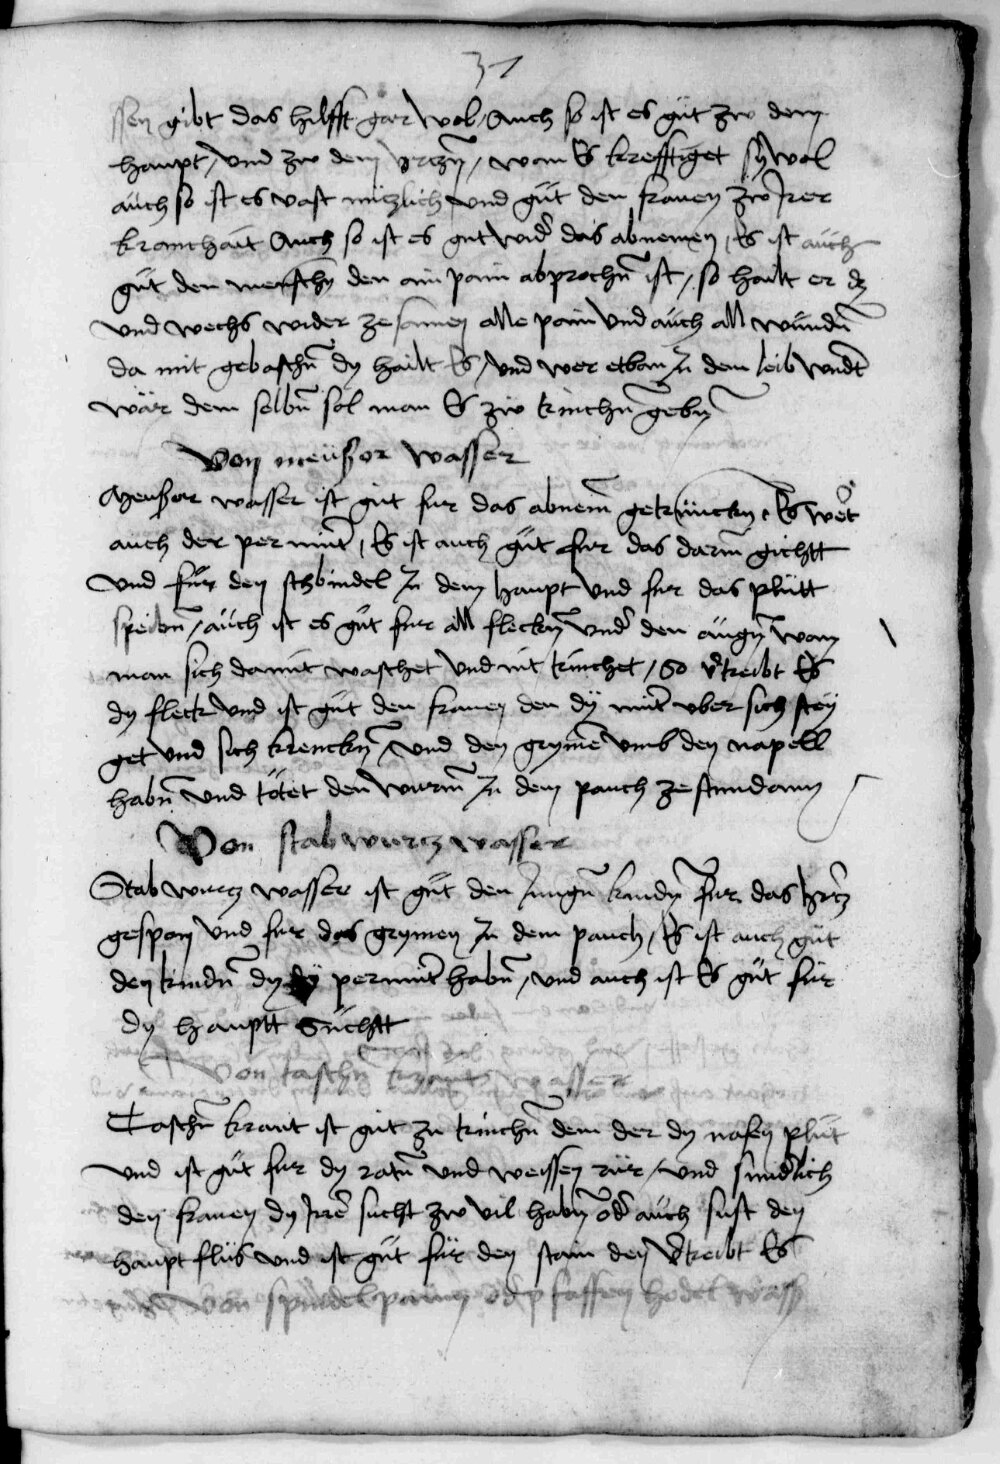 31
ssen gibt das hilfft gar wol / Auch so ist es gut zw dem
haupt / vnd zw dem hertzn / wan Es krefftiget sy wol
auch so ist es vast nützlich vnd güt den frauen zw Irer
kranchait Auch so ist es gut wider das abnemen / Es ist auch
güt den menschn den ain pain abprochn ist / so hailt er dy
vnd wechs wider zesamen alle pain vnd auch all wundn
da mit gebaschn dy hailt Es / vnd wer etban In dem leib wndt
wär dem selbn sol man Es zw trinchn gebn
Von meüßor wasser
Meusor wasser ist gut fur das abnem getrunckn / Es wert
auch der permuter / Es ist auch güt fur das darm gichtt
vnd für den schbindel In dem haupt vnd fur das plütt
speibn / auch ist es güt fur all fleckn vnder den augn wan
man sich damit waschet vnd nit trinchet / So vertreibt Es
dy fleck vnd ist güt den frauen den dy muter vber sich stey
get vnd sich krenckn / vnd den grymen vmb den napell
habn vnd tötet den wurm In dem pauch zestundann
Von stabwurtz wasser
Stabwurtz wasser ist güt den Jungn kindn fur das hertz
gespan vnd fur das grymen In dem pauch / Es ist auch güt
den kindn dy permuter habn / vnd auch ist Es güt für
dy hauptt suchtt
Von taschn kraut wasser
Taschn kraut ist güt zu trinchn dem der dy nasen plüt
vnd ist güt fur dy ratn vnd weissen rür / vnd sunderlich
den frauen dy Irer sucht zw vil habn oder auch sust den
haupt flüs vnd ist güt für den stain den vertreibt Es
Von spindelpaumen oder pfaffen hodel wasser